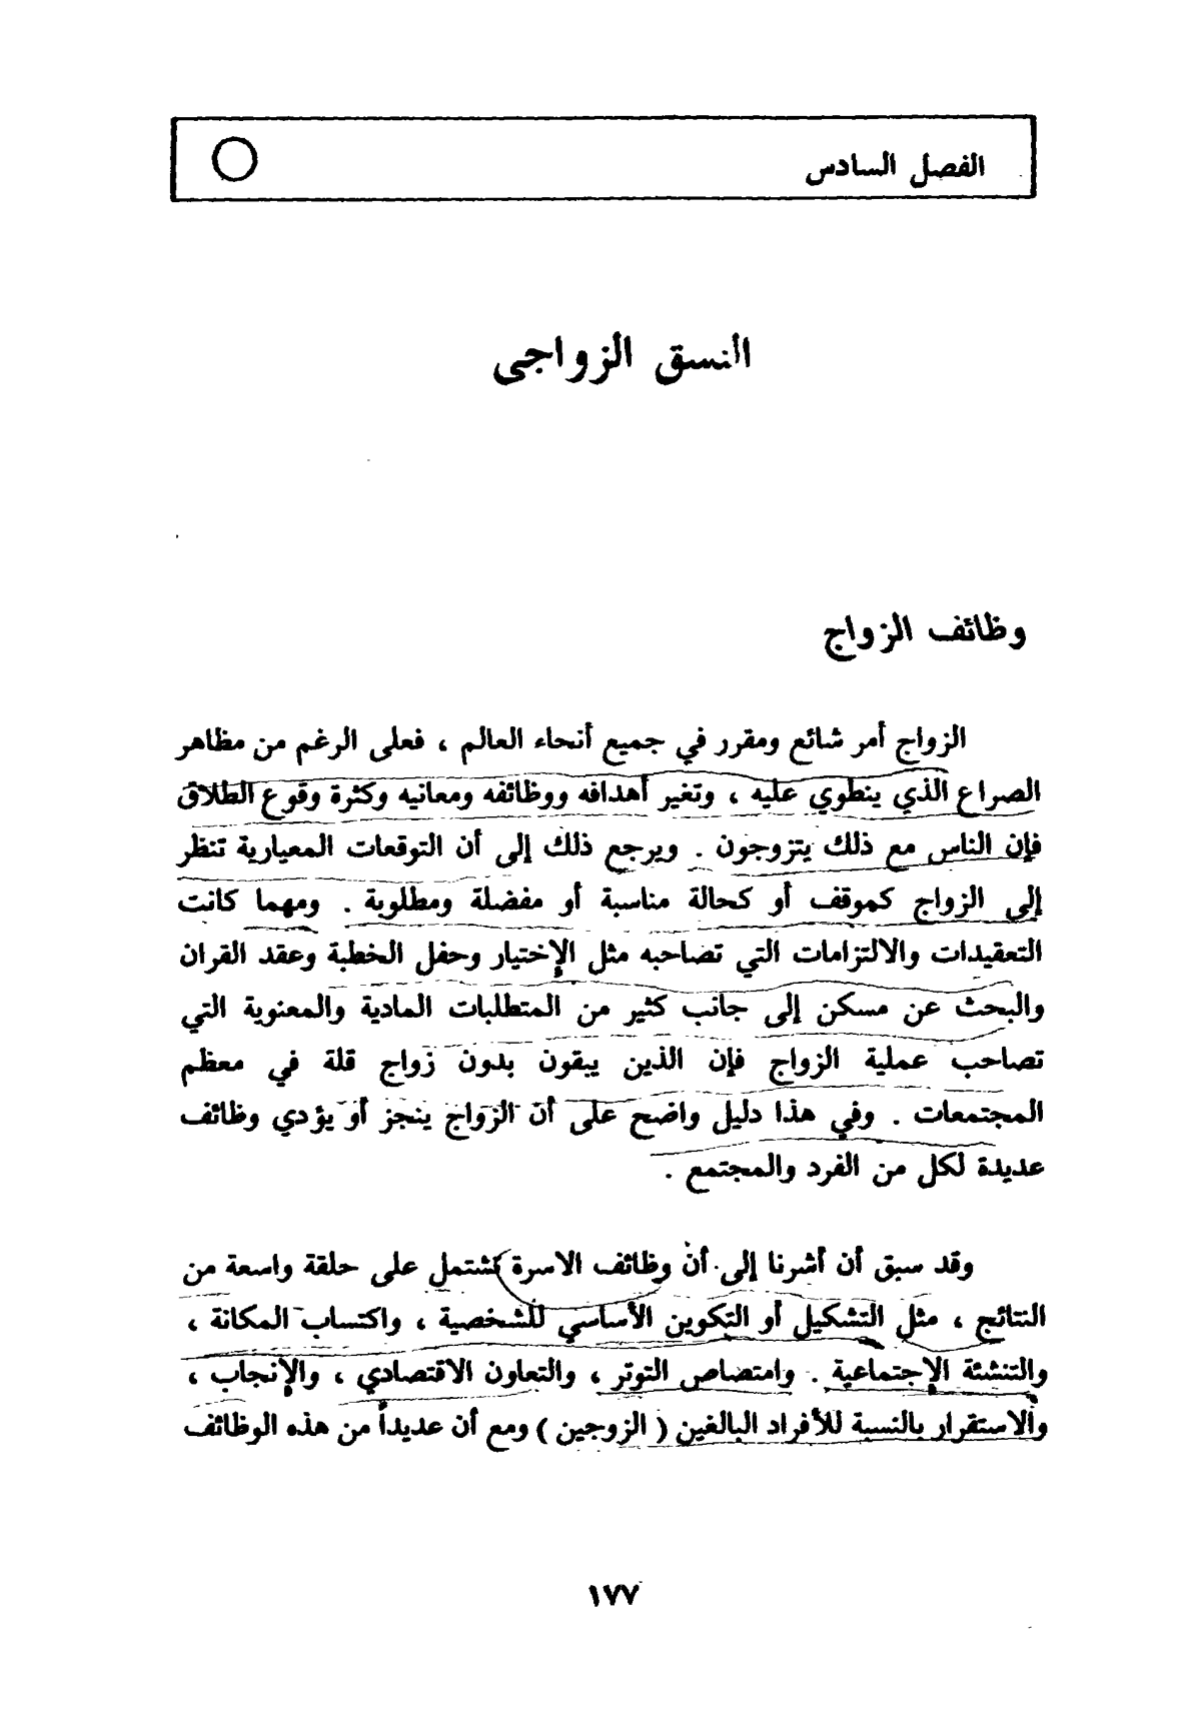 الفصل السادس
النسق الزواجى
وظائف الزواج
الزواج أمر شائع ومقرر في جميع أنحاء العالم ، فعلى الرغم من مظاهر
الصراع الذي ينطوي عليه ، وتغير أهدافه ووظائفه ومعانيه وكثرة وقوع الطلاق
فإن الناس مع ذلك يتزوجون . ويرجع ذلك إلى أن التوقعات المعيارية تنظر
إلى الزواج كموقف أو كحالة مناسبة أو مفضلة ومطلوبة . ومهما كانت
التعقيدات والالتزامات التي تصاحبه مثل الإختيار وحفل الخطبة وعقد القران
والبحث عن مسكن إلى جانب كثير من المتطلبات المادية والمعنوية التي
تصاحب عملية الزواج فإن الذين يبقون بدون زواج قلة في معظم
المجتمعات . وفي هذا دليل واضح على أن الزواج ينجز أو يؤدي وظائف
عديدة لكل من الفرد والمجتمع .
وقد سبق أن أشرنا إلى أن وظائف الاسرة تشتمل على حلقة واسعة من
النتائج ، مثل التشكيل أو التكوين الأساسي للشخصية ، واكتساب المكانة ،
والتنشئة الإجتماعية . وامتصاص التوتر ، والتعاون الاقتصادي ، والإنجاب ،
والاستقرار بالنسبة للأفراد البالغين ( الزوجين ) ومع أن عديداً من هذه الوظائف
١٧٧